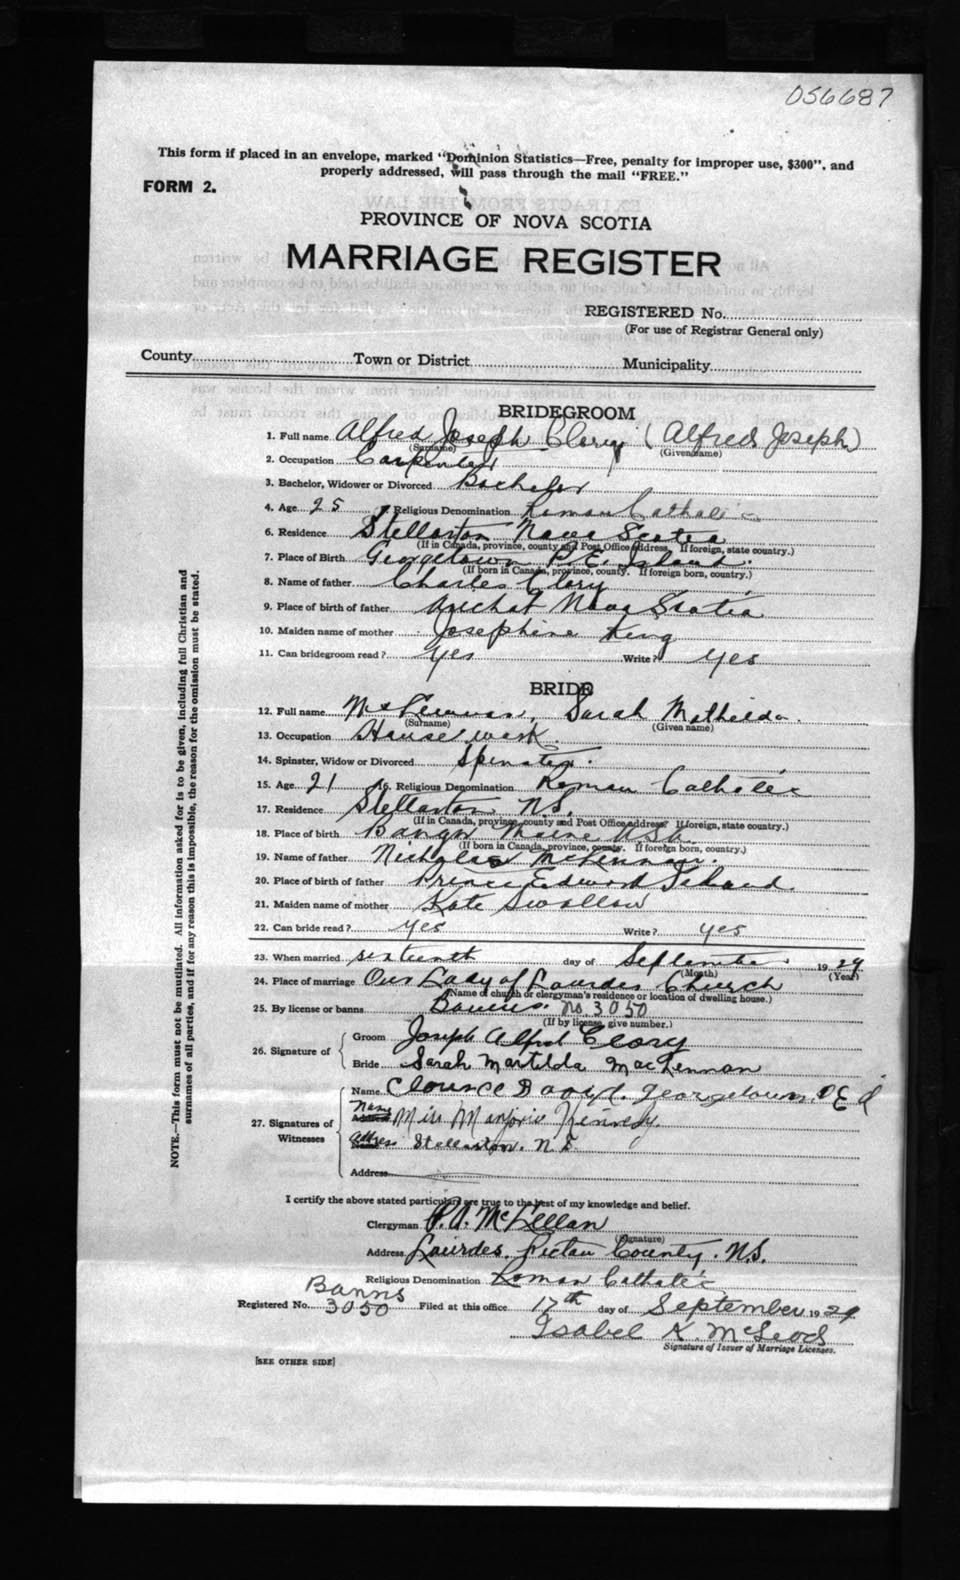 056687
This form if placed in an envelope, marked "Dominion Statistics—Free, penalty for improper use, $300", and
properly addressed, will pass through the mail "FREE."
FORM 2.
PROVINCE OF NOVA SCOTIA
MARRIAGE REGISTER
REGISTERED No.
(For use of Registrar General only)
County Town or District Municipality
BRIDEGROOM
1. Full name Alfred Joseph Clory (Alfred Joseph)
(Surname) (Given name)
2. Occupation Carpenter
3. Bachelor, Widower or Divorced Bachelor
4. Age 25 5. Religious Denomination Roman Catholic
6. Residence Stellarton Nova Scotia
(If in Canada, province, county and Post Office address. If foreign, state country.)
7. Place of Birth Georgetown P.E. Island.
(If born in Canada, province, county. If foreign born, country.)
8. Name of father Charles Clory
9. Place of birth of father Arichat Nova Scotia
10. Maiden name of mother Josephine King
11. Can bridegroom read? yes Write? yes
BRIDE
12. Full name McLennan, Sarah Mathilda.
(Surname) (Given name)
13. Occupation House work.
14. Spinster, Widow or Divorced Spinster.
15. Age 21 16. Religious Denomination Roman Catholic
17. Residence Stellarton N.S.
(If in Canada, province, county and Post Office address. If foreign, state country.)
18. Place of birth Bangor Maine U.S.A.
(If born in Canada, province, county. If foreign born, country.)
19. Name of father Nicholas McLennan.
20. Place of birth of father Prince Edward Island
21. Maiden name of mother Kate Swallow
22. Can bride read? yes Write? yes
23. When married sixteenth day of September 1929
(Month) (Year)
24. Place of marriage Our Lady of Lourdes Church
(Name of church or clergyman's residence or location of dwelling house.)
25. By license or banns Banns. No. 3050
(If by license, give number.)
26. Signature of Groom Joseph Alfred Clory
Bride Sarah Martilda MacLennon
27. Signatures of Witnesses
Name Georgetown P E I
Name Miss Marjorie Kennedy.
Address Stellarton. N.S.
Address
I certify the above stated particulars are true to the best of my knowledge and belief.
Clergyman McLellan
(Signature)
Address Lourdes, Pictou County. N.S.
Religious Denomination Roman Catholic
Banns
Registered No. 3050 Filed at this office 17th day of September 1929
Isabel K. McLeod
Signature of Issuer of Marriage Licenses.
[SEE OTHER SIDE]
NOTE.—This form must not be mutilated. All information asked for is to be given, including full Christian and
surnames of all parties, and if for any reason this is impossible, the reason for the omission must be stated.